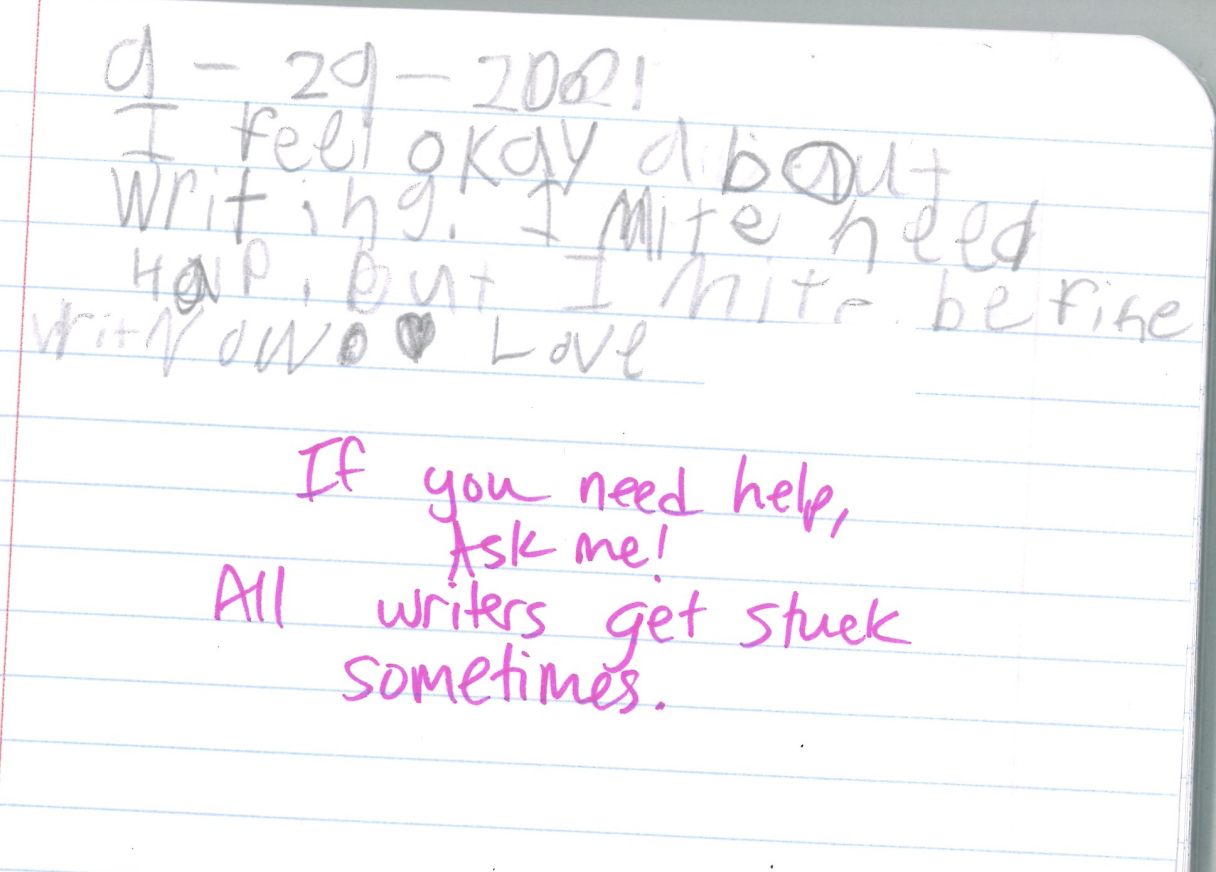 9-29-20021
I feel okay about
writing. I mite need
Halp. But I mite be fine
writ Now. ♥ Love
If you need help,
Ask me!
All writers get stuck
sometimes.